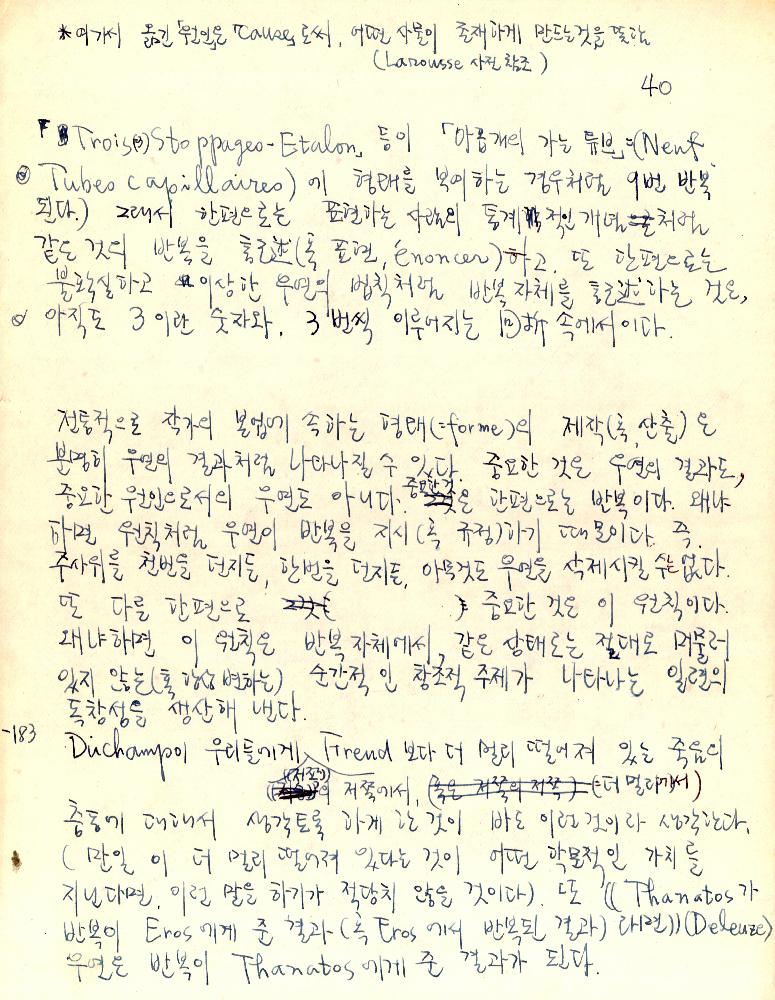 * 여기서 옮긴 「원인」은 「Cause」로써, 어떤 사물이 존재하게 만드는것을 뜻함
(Larousse 사전 참조)
40
「Trois(3) Stoppages-Etalon」 등이 「아홉개의 가는 튜브」=(Neuf
Tubes capillaires)에 형태를 복여하는 경우처럼 9번 반복
된다.) 그래서 한편으로는 표현하는 사람의 통계적인 개념처럼
같은 것의 반복을 記述(혹 표현, énoncer)하고, 또 한편으로는
불확실하고 이상한 우연의 법칙처럼 반복자체를 記述하는 것은,
아직도 3이란 숫자와, 3번씩 이루어지는 回折 속에서이다.
전통적으로 작가의 본업에 속하는 형태(=forme)의 제작(혹, 산출)은
분명히 우연의 결과처럼 나타나질 수 있다. 중요한 것은 우연의 결과도,
중요한 원인으로서의 우연도 아니다. 중요한것은 한편으로는 반복이다. 왜냐
하면 원칙처럼 우연이 반복을 지시(혹 규정)하기 때문이다. 즉,
주사위를 천번을 던지든, 한번을 던지든, 아무것도 우연을 삭제시킬 수는 없다.
또 다른 한편으로 중요한 것은 이 원칙이다.
왜냐하면 이 원칙은 반복자체에서, 같은 상태로는 절대로 머물러
있지 않는(혹 항상 변하는) 순간적인 창조적 주제가 나타나는 일련의
독창성을 생산해 낸다.
-183 Duchamp이 우리들에게 Freud 보다 더 멀리 떨어져 있는 죽음의
((저쪽))의 저쪽에서, (=더 멀리가서)
충동에 대해서 생각토록 하게 하는것이 바로 이런것이라 생각한다.
(만일 이 더 멀리 떨어져 있다는 것이 어떤 학문적인 가치를
지닌다면, 이런 말을 하기가 적당치 않을 것이다). 또 ((Thanatos가
반복이 Eros에게 준 결과(혹 Eros에서 반복된 결과)라면))(Deleuze)
우연은 반복이 Thanatos에게 준 결과가 된다.